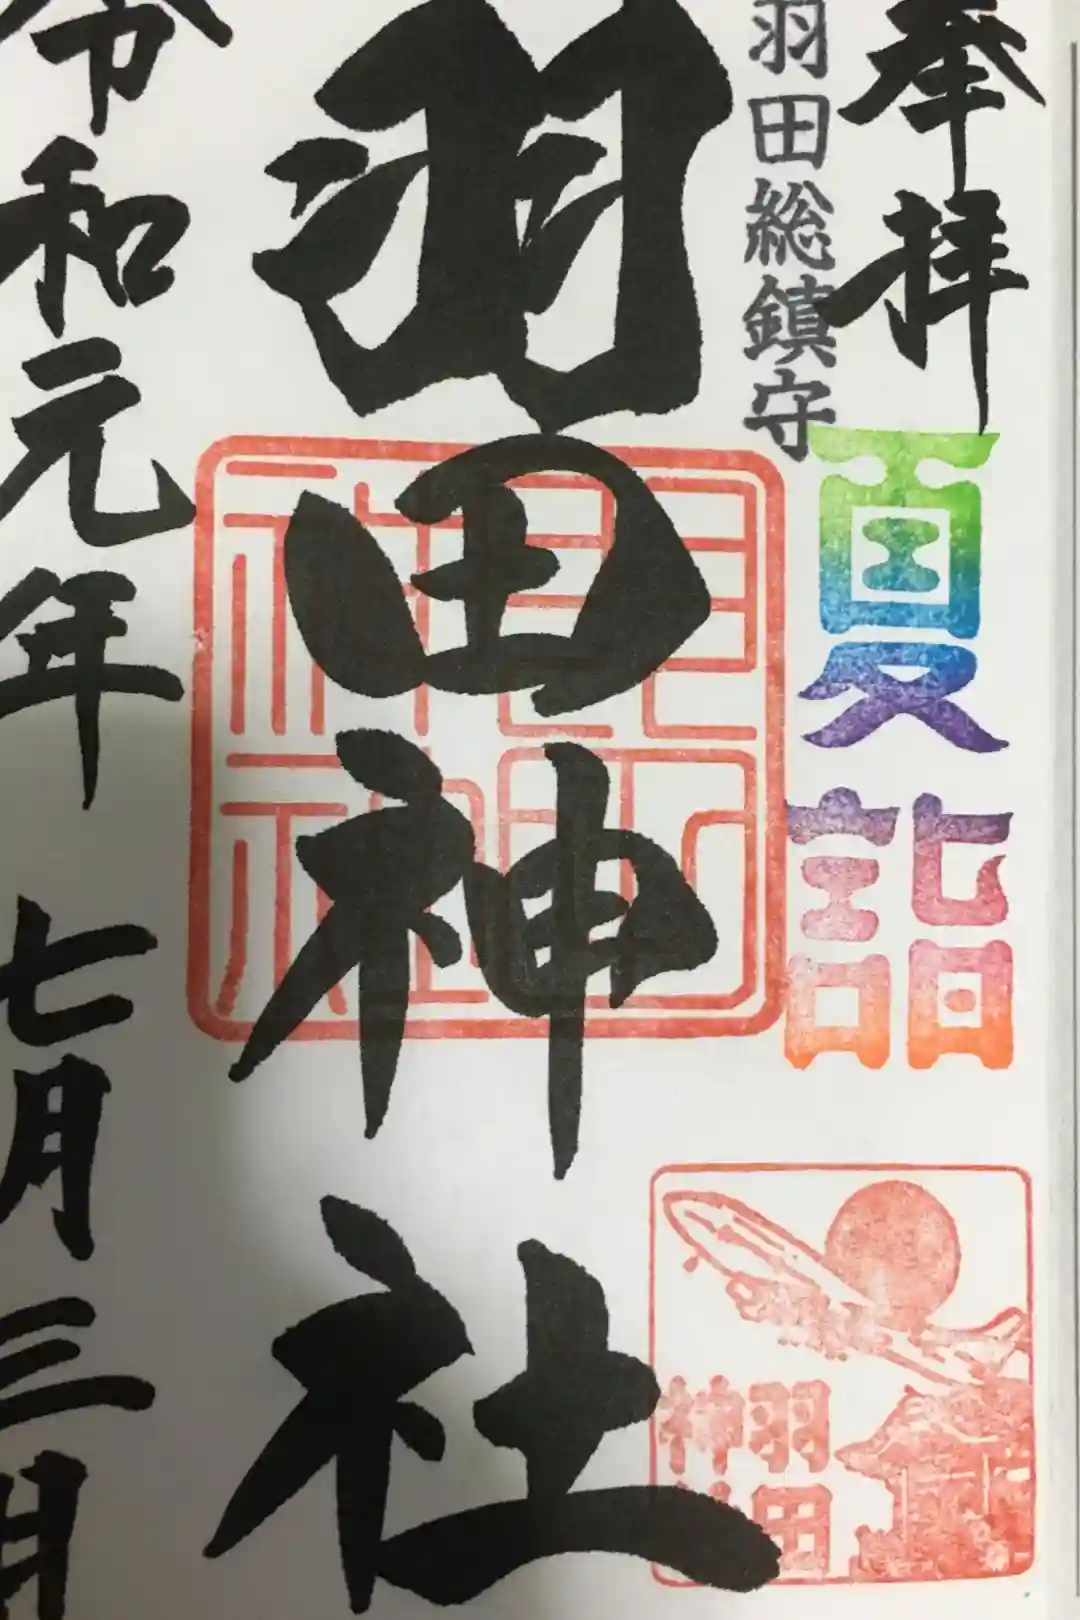 奉拝
羽田総鎮守
夏詣
羽田神社
羽田神社
羽田
神
令和元年 七月三日